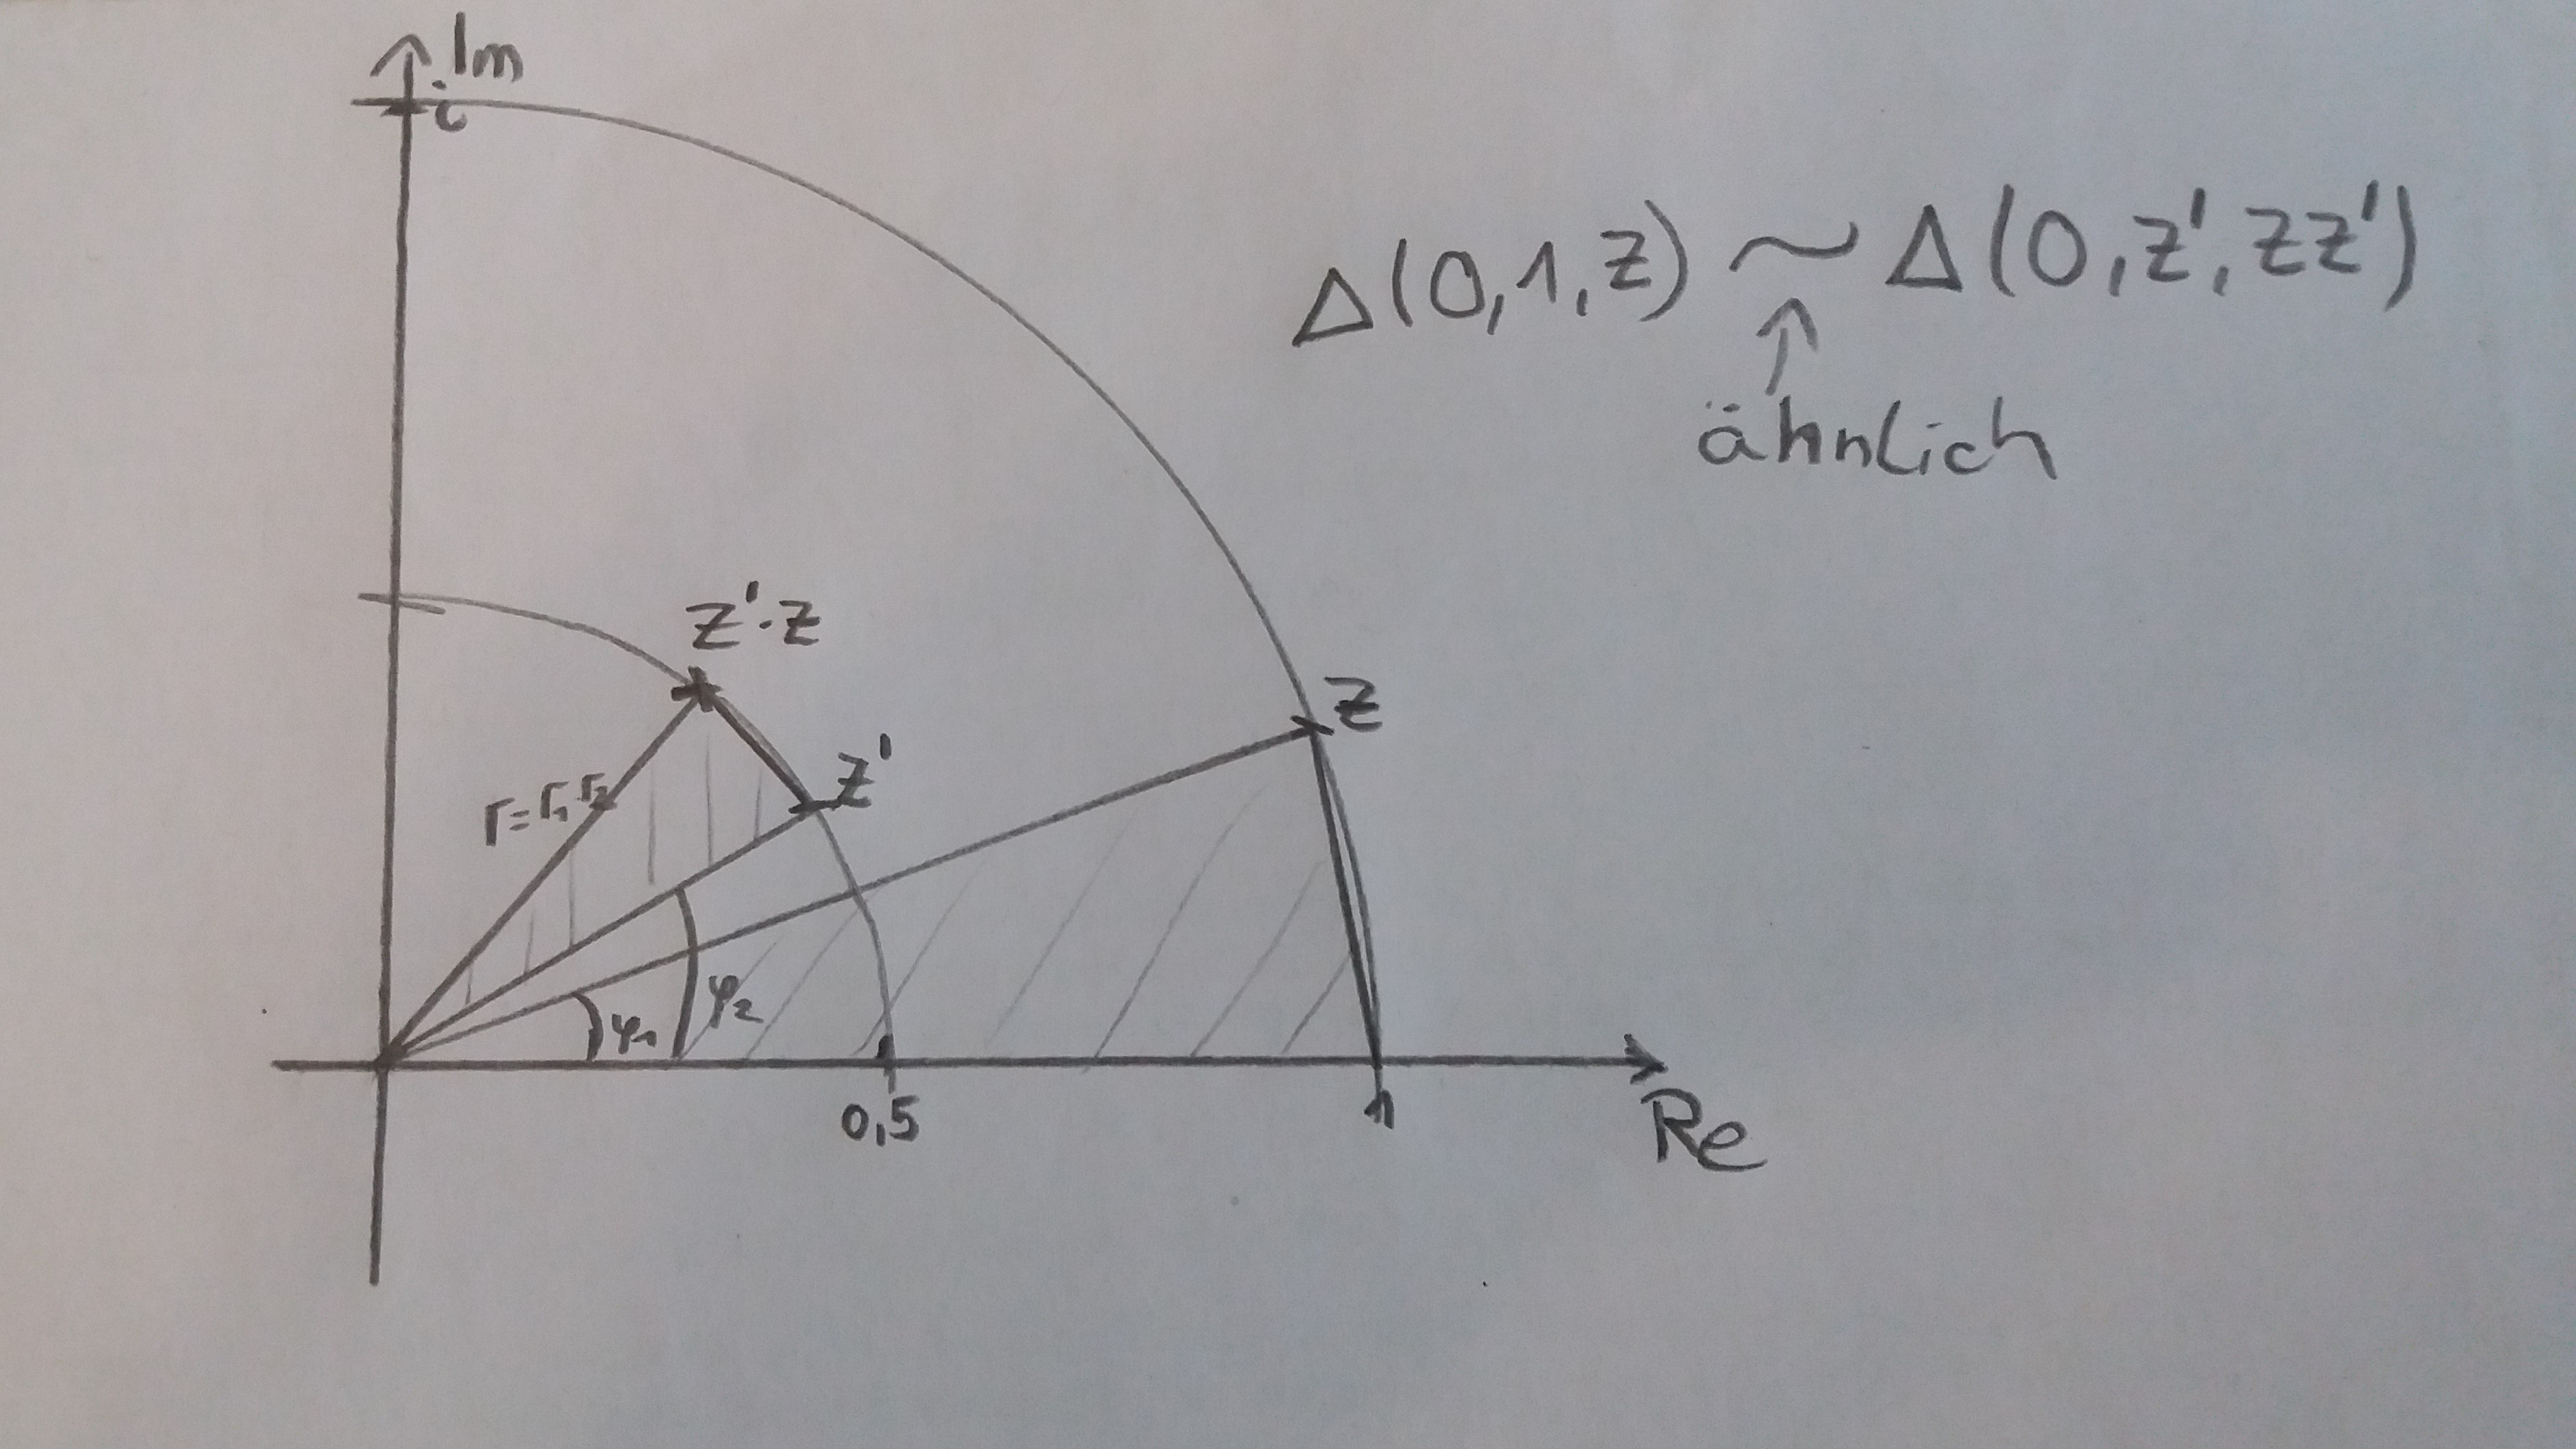 Im
i
Δ(0,1,z) ~ Δ(0,z',zz')
↑
ähnlich
z'·z
z
z'
r=r₁·r₂
φ₂
φ₁
0,5
1
Re